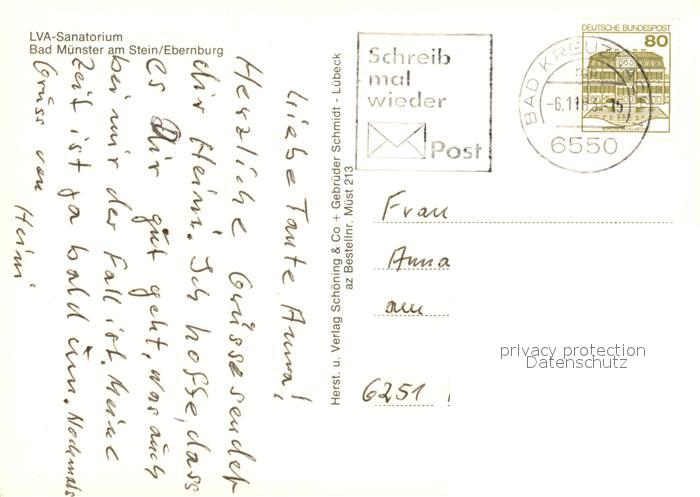 LVA-Sanatorium
Bad Münster am Stein/Ebernburg
Liebe Tante Anna!
Herzliche Grüsse sendet
dir Heini. Ich hoffe, dass
es Dir gut geht, was auch
bei mir der Fall ist. Meine
Zeit ist ja bald um. Nochmals
Gruss von
Heini
Herst. u. Verlag Schöning & Co + Gebrüder Schmidt - Lübeck
az Bestellnr. Müst 213
Schreib
mal
wieder
Post
BAD KREUZNACH
-6.11.83-15
6550
DEUTSCHE BUNDESPOST
80
Frau
Anna
am
6251
privacy protection
Datenschutz